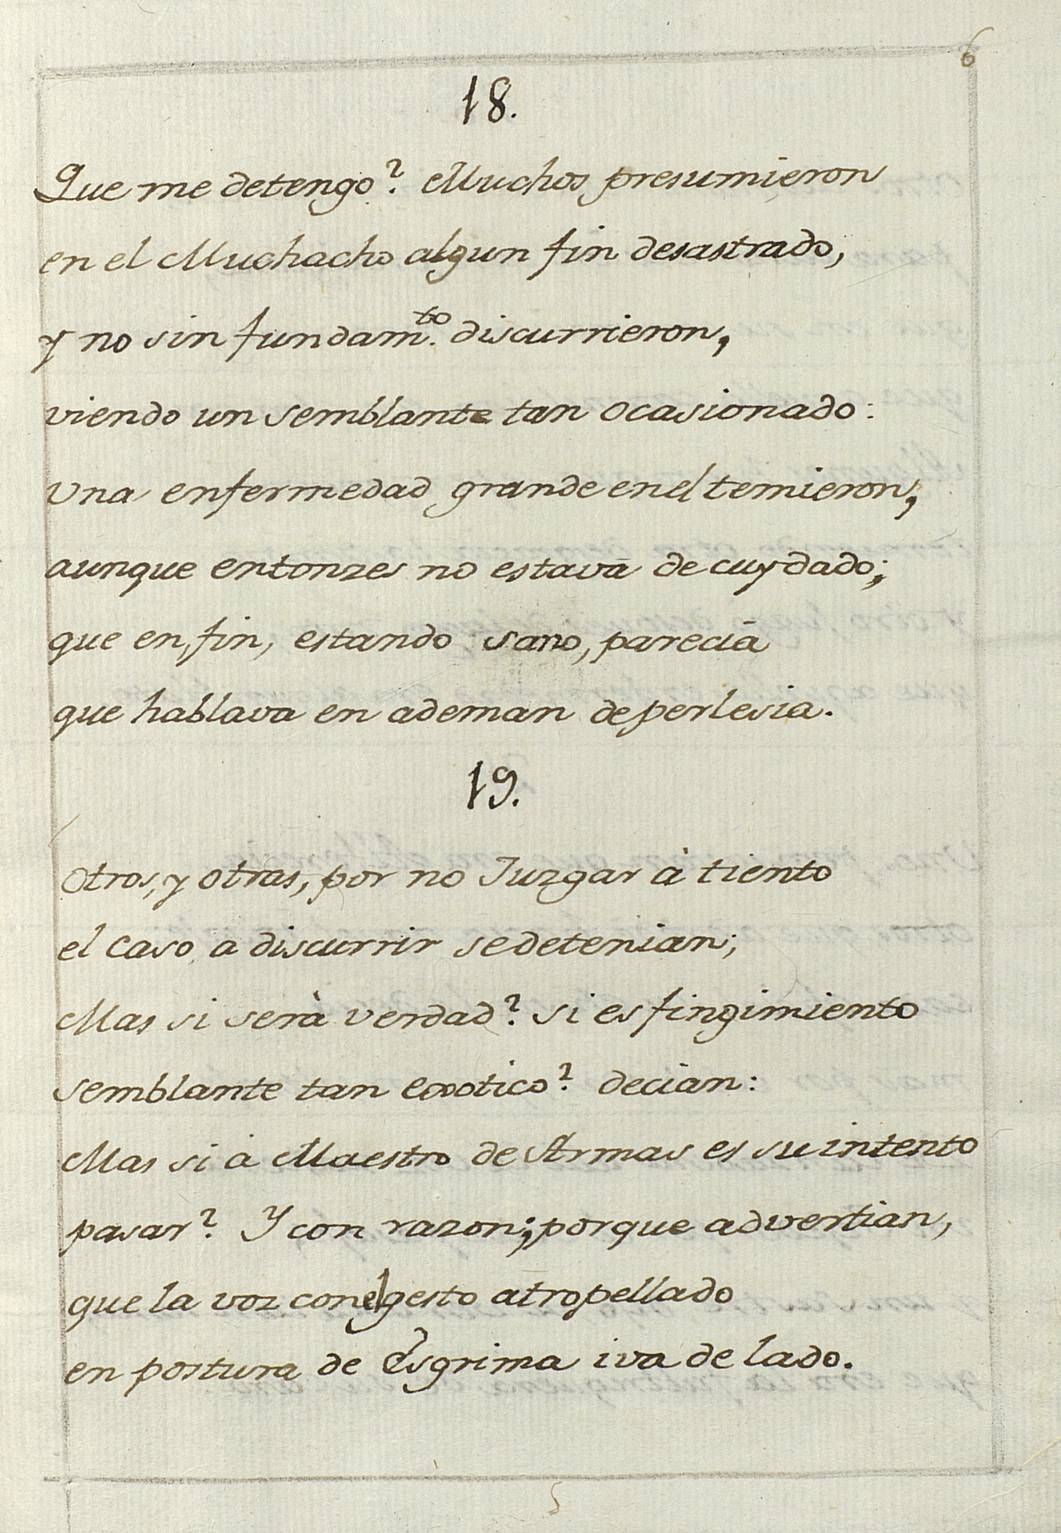 6
18.
Que me detengo? Muchos presumieron
en el Muchacho algun fin desastrado,
y no sin fundam.to discurrieron,
viendo un semblante tan ocasionado:
Una enfermedad grande en el temieron,
aunque entonzes no estava de cuydado;
que en fin, estando sano, parecia
que hablava en ademan de perlesia.
19.
Otros, y otras, por no Juzgar à tiento
el caso, a discurrir se detenian;
Mas si serà verdad? si es fingimiento
semblante tan exotico? decian:
Mas si à Maestro de Armas es su intento
pasar? Y con razon; porque advertian,
que la voz con el gesto atropellado
en postura de Esgrima iva de lado.
5